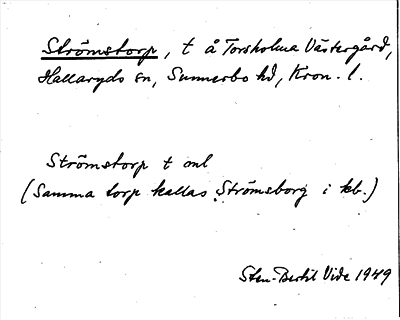 Strömstorp, t å Torsholma Västergård,
Hallaryds sn, Sunnerbo hd, Kron. l.
Strömstorp t ml
(Samma torp kallas Strömsborg i kb.)
Sten-Bertil Vide 1949